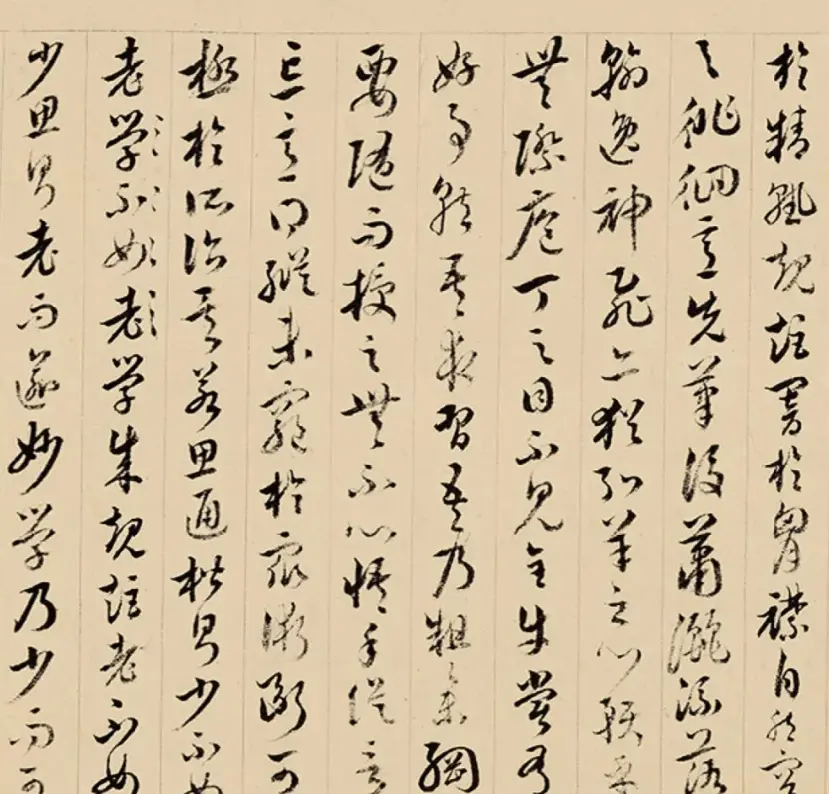 於精熟規矩闇於胸襟自然容
與徘徊意先筆後瀟灑流落
翰逸神飛亦猶弘羊之心預乎
無際庖丁之目不見全牛嘗有
好事就吾求習吾乃粗舉綱
要隨而授之無不心悟手從言
忘意得縱未窮於衆術斷可
極於所詣矣若思通楷則少不如
老學〻不〻如〻老〻學成規矩老不如
少思則老而逾妙學乃少而可